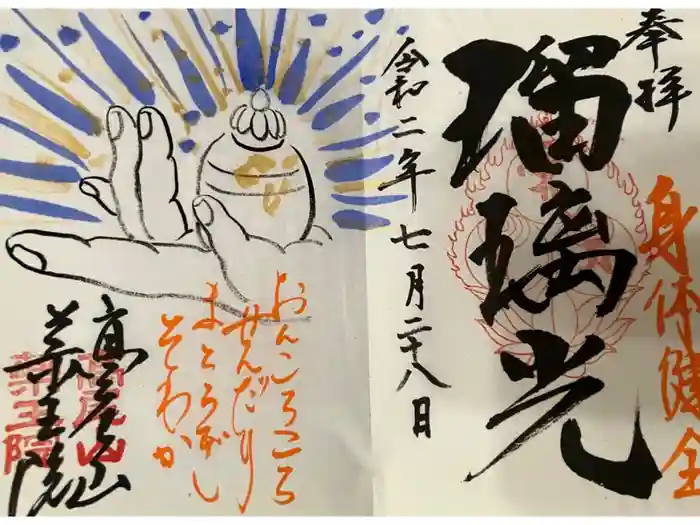 奉拝
身体健全
瑠璃光
令和二年七月二十八日
おんころころ
せんだり
まとうぎし
そわか
薬王院
薬王院